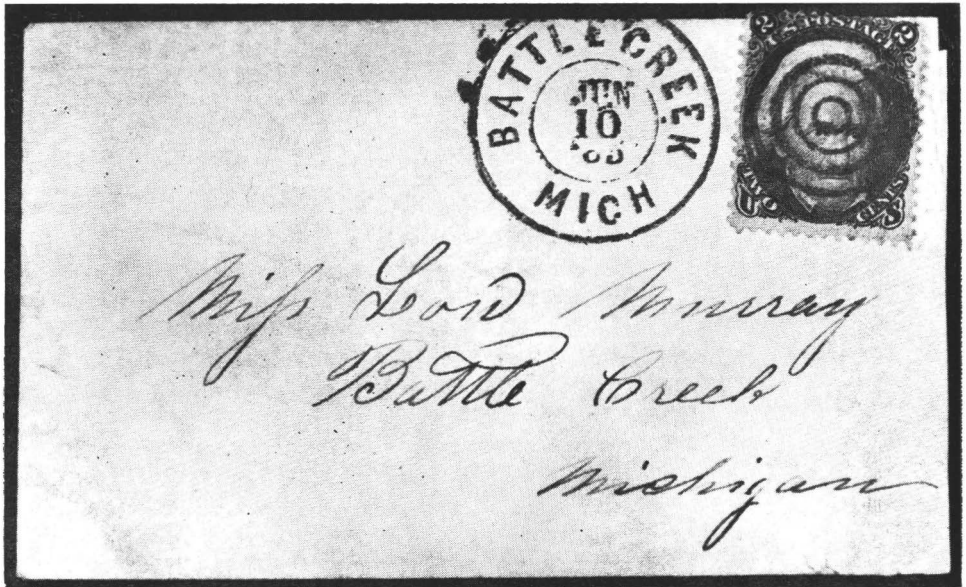 BATTLE CREEK
JUN
10
MICH
2 U.S. POSTAGE 2
TWO CENTS
Miss Murray
Battle Creek
Michigan